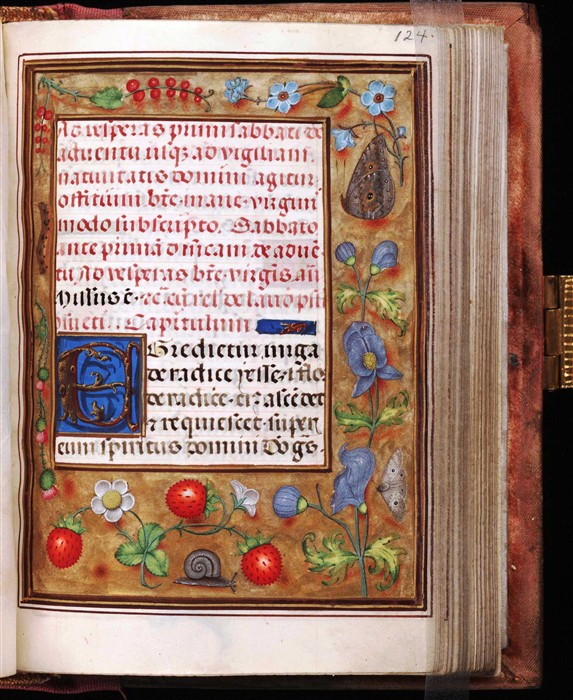 124.
Ad vesperas primi sabbati de
aduentu usq3 ad vigiliam
natiuitatis domini agitur
officium bte marie virgini
modo subscripto. Sabbato
ante primā dn̄icam de aduē
tu Ad vesperas bte virgis añ
Missus ē. de
Capitulum
EGredietur virga
de radice yesse. & flos
de radice eiꝰ ascēdet
& requiescet super
eum spiritus domini Do gs.